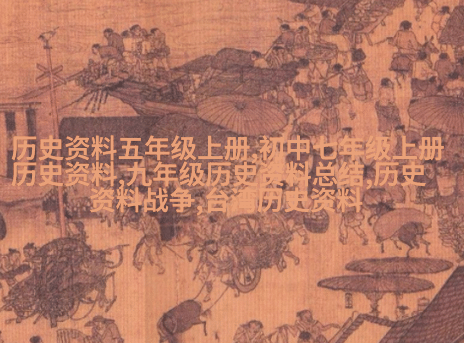 历史资料五年级上册,初中七年级上册
历史资料,九年级历史资料总结,历史
资料战争,台湾历史资料